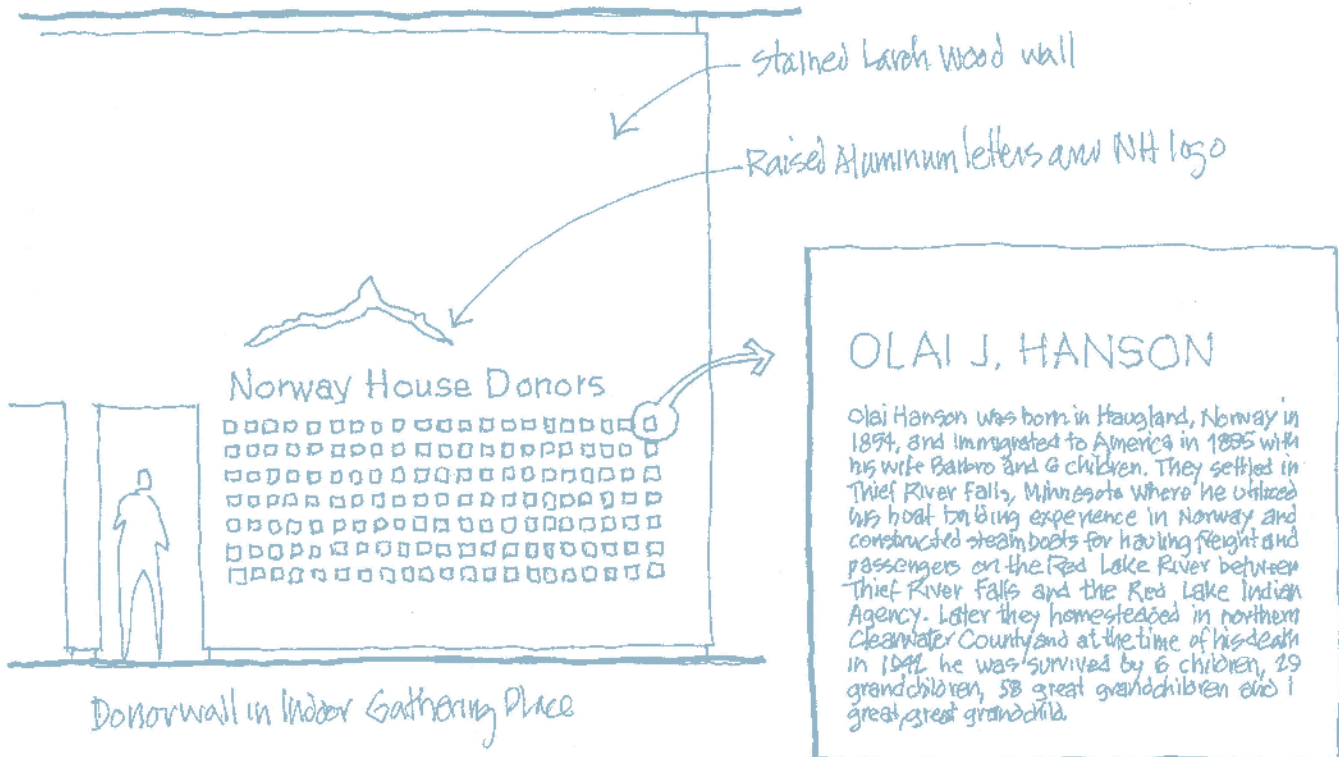 Stained Larch Wood wall
Raised Aluminum letters and NH logo
Norway House Donors
OLAI J. HANSON
Olai Hanson was born in Haugland, Norway in
1854, and immigrated to America in 1895 with
his wife Barbro and 6 children. They settled in
Thief River Falls, Minnesota where he utilized
his boat building experience in Norway and
constructed steamboats for hauling freight and
passengers on the Red Lake River between
Thief River Falls and the Red Lake Indian
Agency. Later they homesteaded in northern
Clearwater County and at the time of his death
in he was survived by 6 children, 29
grandchildren, 58 great grandchildren and 1
great, great grandchild.
Donorwall in Indoor Gathering Place